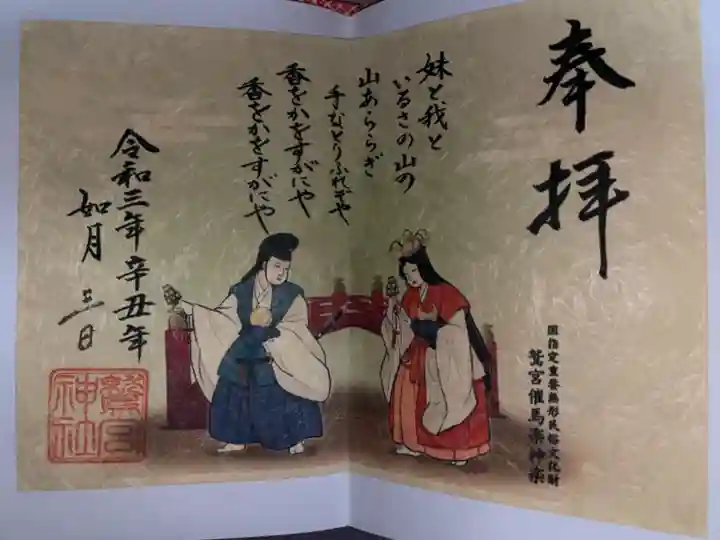 奉拝
国指定重要無形民俗文化財
鷲宮催馬楽神楽
妹と、我と
いるさの山の
山あららぎ
手なとりふれそや
香をかをすがにや
香をかをすがにや
令和三年辛丑年
如月三日
鷲宮
神社